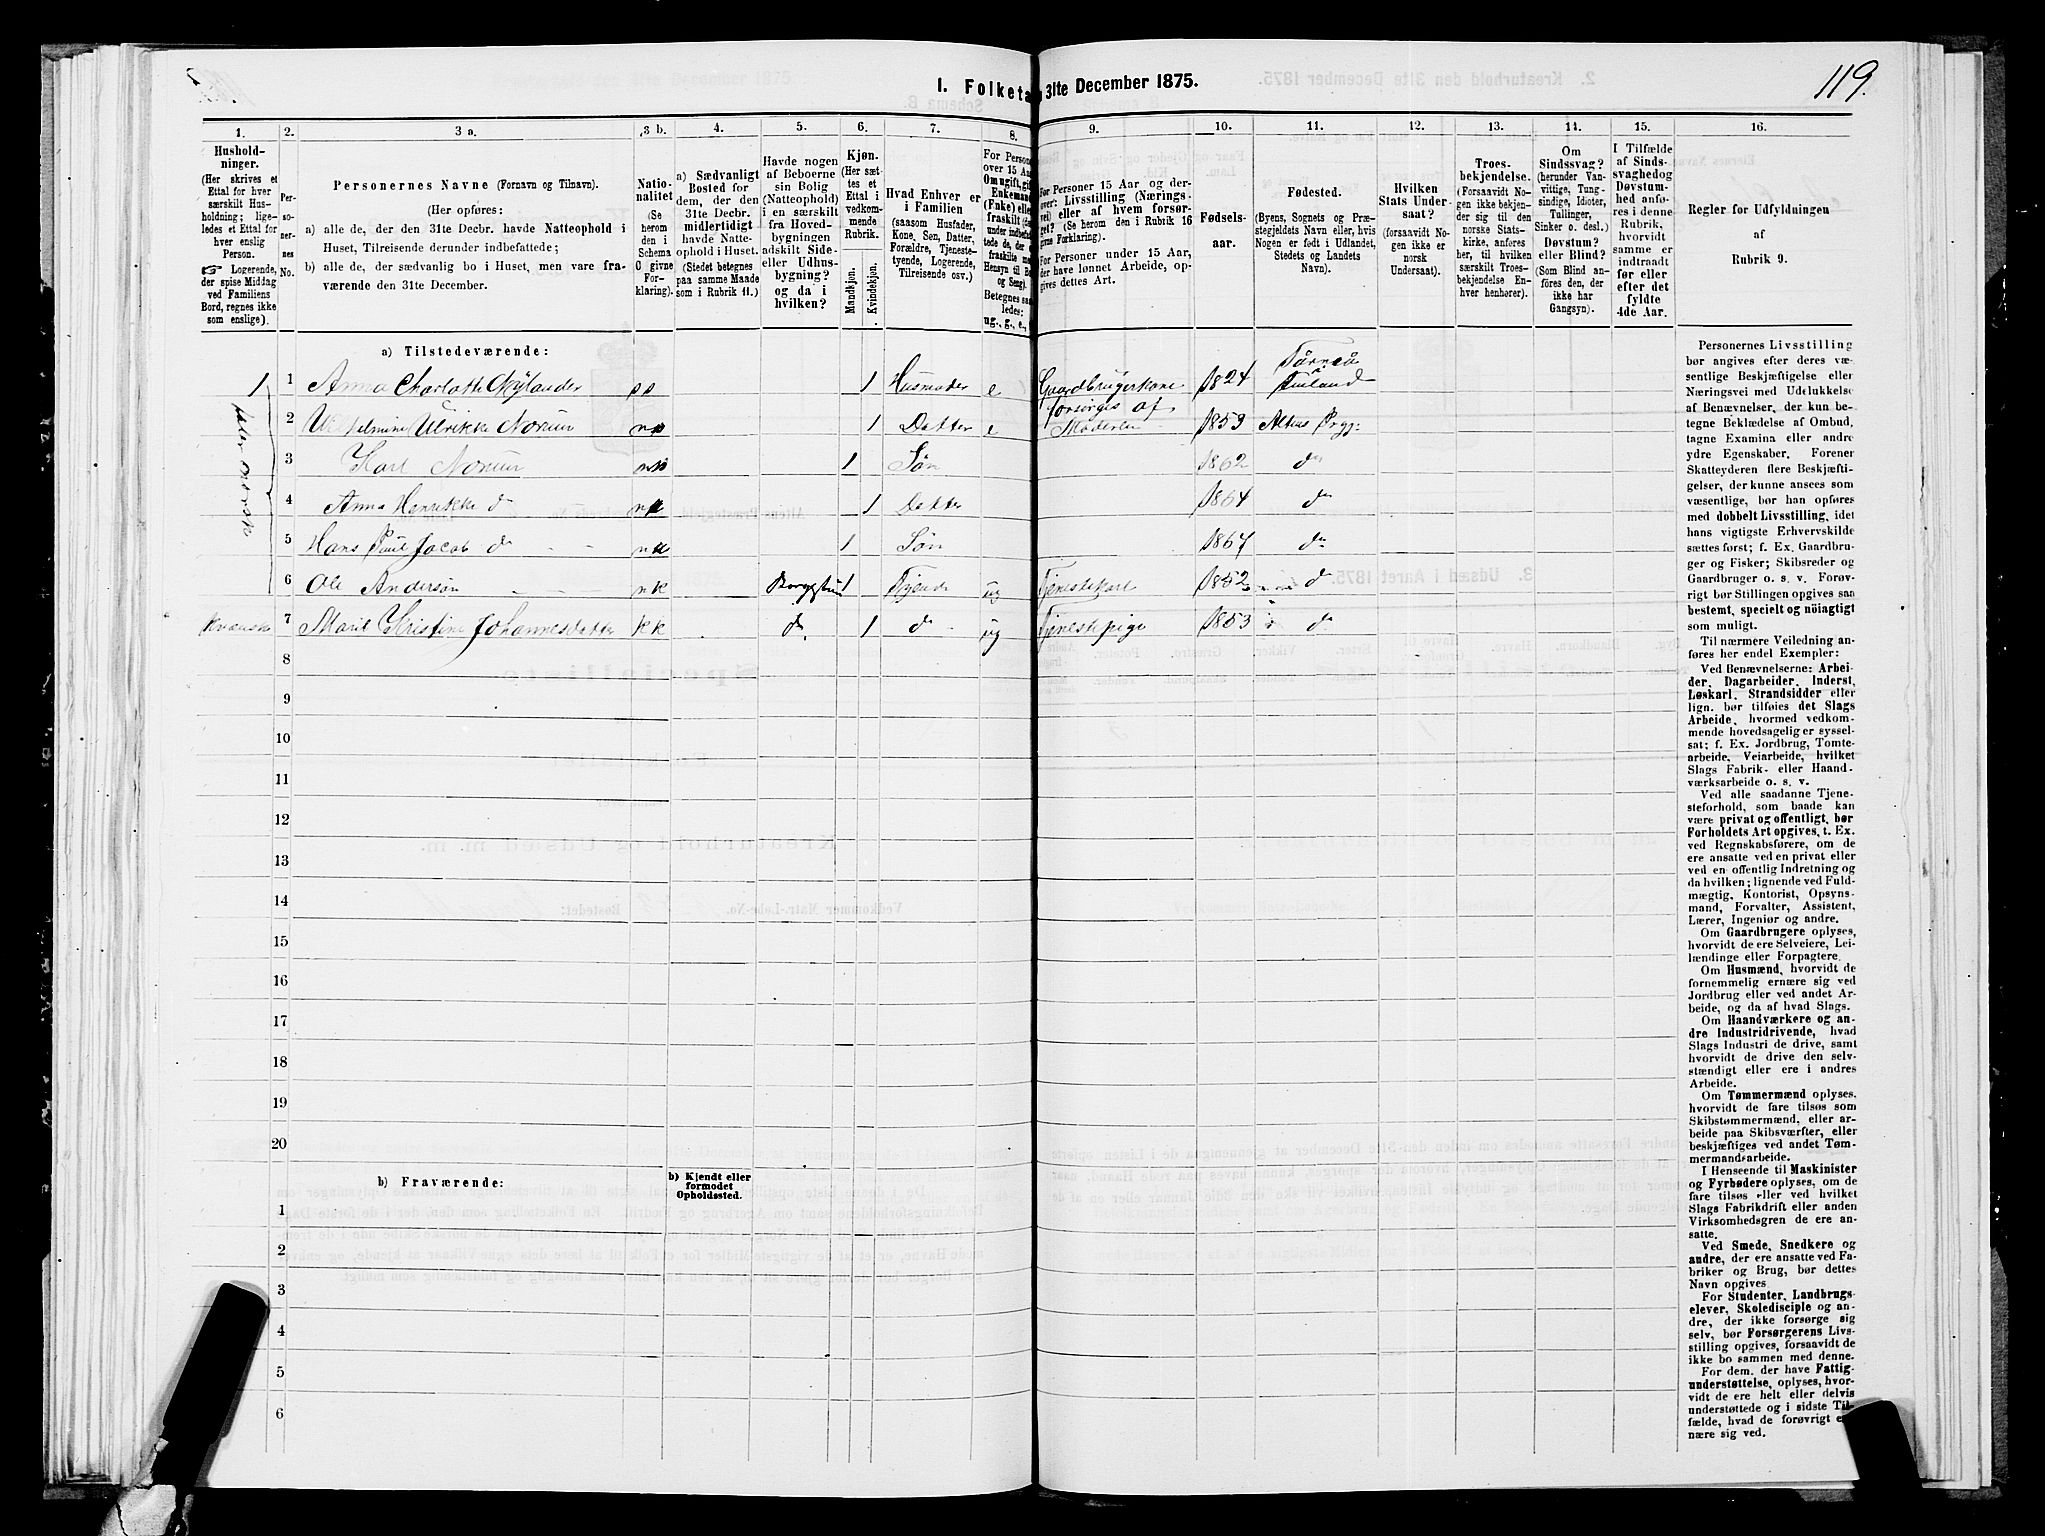 119.
1. Folketæ 31te December 1875.
1. 2. 3 a. 3 b. 4. 5. 6. 7. 8. 9. 10. 11. 12. 13. 14. 15. 16.
Hushold-
ninger.
(Her skrives et
Ettal for hver
særskilt Hus-
holdning; lige-
ledes et Ettal for
hver enslig
Person.
☞ Logerende,
der spise Middag
ved Familiens
Bord, regnes ikke
som enslige).
Per-
so-
ner-
nes
No.
Personernes Navne (Fornavn og Tilnavn).
(Her opføres:
a) alle de, der den 31te Decbr. havde Natteophold i
Huset, Tilreisende derunder indbefattede;
b) alle de, der sædvanlig bo i Huset, men vare fra-
værende den 31te December.
Natio-
nalitet
(Se
herom
den i
Schema
O givne
For-
klaring).
a) Sædvanligt
Bosted for
dem, der den
31te Decbr.
midlertidigt
havde Natte-
ophold i Huset.
(Stedet betegnes
paa samme Maade
som i Rubrik 11.)
Havde nogen
af Beboerne
sin Bolig
(Natteophold)
i en særskilt
fra Hoved-
bygningen
adskilt Side-
eller Udhus-
bygning?
og da i
hvilken?
Kjøn.
(Her sæt-
tes et
Ettal i
vedkom-
mende
Rubrik.
Mandkjøn.
Kvindekjøn.
Hvad Enhver er
i Familien
(saasom Husfader,
Kone, Søn, Datter,
Forældre, Tjeneste-
tyende, Logerende,
Tilreisende osv.)
For Person
over 15 Aar
Om ugift, gi
Enkemand
(Enke) elle
fraskilt
Betegnes saa
ledes:
ug., g., e.,
For Personer 15 Aar og der-
over: Livsstilling (Nærings-
vei) eller af hvem forsør-
get? (Se herom den i Rubrik 16
givne Forklaring).
For Personer under 15 Aar,
der have lønnet Arbeide, op-
gives dettes Art.
Fødsels-
aar.
Fødested.
(Byens, Sognets og Præ-
stegjeldets Navn eller, hvis
Nogen er født i Udlandet,
Stedets og Landets
Navn).
Hvilken
Stats Under-
saat?
(forsaavidt No-
gen ikke er
norsk
Undersaat).
Troes-
bekjendelse.
(Forsaavidt No-
gen ikke bekjen-
der sig til den
norske Stats-
kirke, anføres
her, til hvilken
særskilt Troes-
bekjendelse En-
hver henhører).
Om
Sindssvag?
(herunder Van-
vittige, Tung-
sindige, Idioter,
Tullinger,
Sinker o. desl.)
Døvstum?
eller Blind?
(Som Blind an-
føres den, der
ikke har
Gangsyn).
I Tilfælde
af Sinds-
svaghed og
Døvstum-
hed anfø-
res i denne
Rubrik,
hvorvidt
samme er
indtraadt
før eller
efter det
fyldte
4de Aar.
Regler for Udfyldningen
af
Rubrik 9.
a) Tilstedeværende:
1 1 Anna Charlotte Nylander 1 Husmoder e Gaardbrugerkone 1824 Torneå Finland
2 Vilhelmine Ulrikke Norum 1 Datter forsørges af Moderen 1853
3 Karl Norum 1 Søn 1862 do
4 Anna Henrikke d 1 Datter 1864 do
5 Hans Paul Jacob d 1 Søn 1867 do
6 Ole Anderson n k 1 Tjener ug Tjenestekarl 1852 d
Kvænsk 7 Marit Kristine Johannesdatter k k d. 1 d ug Tjenestepige 1853 d
8
9
10
11
12
13
14
15
16
17
18
19
20
b) Fraværende:
b) Kjendt eller
formodet
Opholdssted.
1
2
3
4
5
6
Personernes Livsstilling
bør angives efter deres væ-
sentlige Beskjæftigelse eller
Næringsvei med Udelukkelse
af Benævnelser, der kun be-
tegne Beklædelse af Ombud,
tagne Examina eller andre
ydre Egenskaber. Forener
Skatteyderen flere Beskjæfti-
gelser, der kunne ansees som
væsentlige, bør han opføres
med dobbelt Livsstilling, idet
hans vigtigste Erhvervskilde
sættes først; f. Ex. Gaardbru-
ger og Fisker; Skibsreder og
Gaardbruger o. s. v. Forøv-
rigt bør Stillingen opgives saa
bestemt, specielt og nöiagtigt
som muligt.
Til nærmere Veiledning an-
føres her endel Exempler:
Ved Benævnelserne: Arbei-
der, Dagarbeider, Inderst,
Løskarl, Strandsidder eller
lign. bør tilføies det Slags
Arbeide, hvormed vedkom-
mende hovedsagelig er syssel-
sat; f. Ex. Jordbrug, Tomte-
arbeide, Veiarbeide, hvilket
Slags Fabrik- eller Haand-
værksarbeide o. s. v.
Ved alle saadanne Tjene-
steforhold, som baade kan
være privat og offentligt, bør
Forholdets Art opgives, t. Ex.
ved Regnskabsførere, om de
ere ansatte ved en privat eller
ved en offentlig Indretning og
da hvilken; lignende ved Fuld-
mægtig, Kontorist, Opsyns-
mand, Forvalter, Assistent,
Lærer, Ingeniør og andre.
Om Gaardbrugere oplyses,
hvorvidt de ere Selveiere, Lei-
lændinge eller Forpagtere.
Om Husmænd, hvorvidt de
fornemmelig ernære sig ved
Jordbrug eller ved andet Ar-
beide, og da af hvad Slags.
Om Haandværkere og an-
dre Industridrivende, hvad
Slags Industri de drive, samt
hvorvidt de drive den selv-
stændigt eller ere i andres
Arbeide.
Om Tømmermænd oplyses,
hvorvidt de fare tilsøs som
Skibstømmermænd, eller ar-
beide paa Skibsværfter, eller
beskjæftiges ved andet Tøm-
mermandsarbeide.
I Henseende til Maskinister
og Fyrbødere oplyses, om de
fare tilsøs eller ved hvilket
Slags Fabrikdrift eller anden
Virksomhedsgren de ere an-
satte.
Ved Smede, Snedkere og
andre, der ere ansatte ved Fa-
briker og Brug, bør dettes
Navn opgives
For Studenter, Landbrugs-
elever, Skoledisciple og an-
dre, der ikke forsørge sig
selv, bør Forsørgerens Livs-
stilling opgives, forsaavidt de
ikke bo sammen med denne.
For dem, der have Fattig-
understøttelse, oplyses, hvor-
vidt de ere helt eller delvis
understøttede og i sidste Til-
fælde, hvad de forøvrigt er-
nære sig ved.